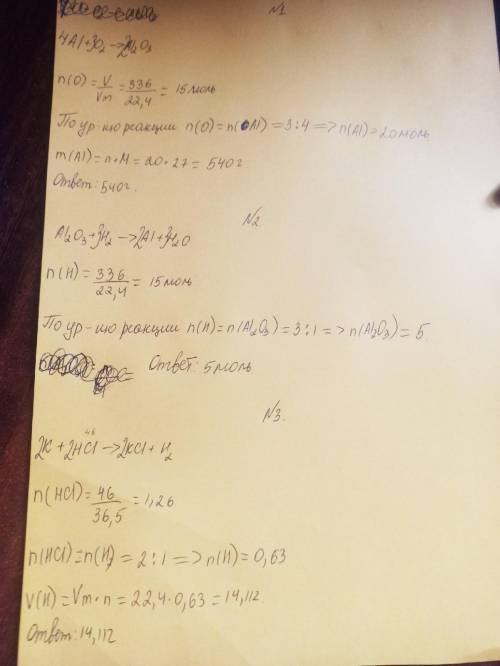 №1
4Al+3O₂→2Al₂O₃
n(O)=V/Vm=336/22,4=15моль
По ур-ию реакции n(O)=n(Al)=3:4=>n(Al)=20моль
m(Al)=n·M=20·27=540г.
Ответ: 540г.
№2
Al₂O₃+3H₂→2Al+3H₂O
n(H)=336/22,4=15моль
По ур-ию реакции n(H)=n(Al₂O₃)=3:1=>n(Al₂O₃)=5
Ответ: 5моль
№3.
46
2K+2HCl→2KCl+H₂
n(HCl)=46/36,5=1,26
n(HCl)=n(H)=2:1=>n(H)=0,63
V(H)=Vm·n=22,4·0,63=14,112.
Ответ: 14,112